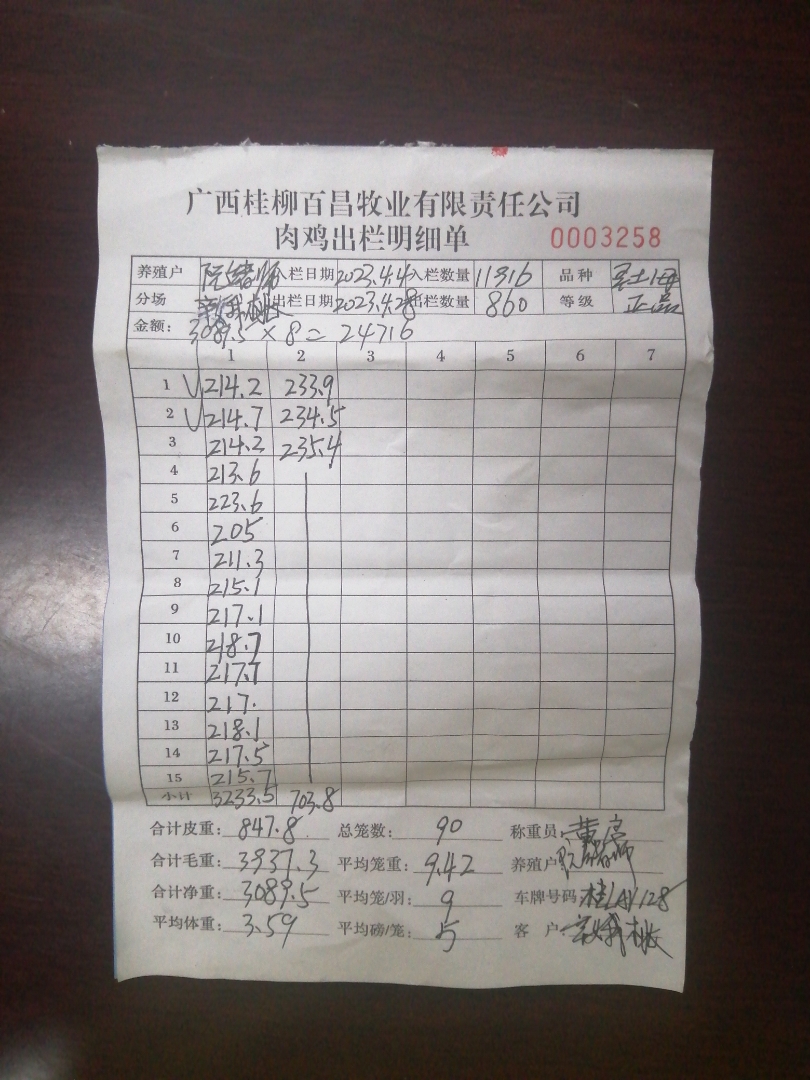 广西桂柳百昌牧业有限责任公司
肉鸡出栏明细单 0003258
养殖户 入栏日期 2023.4.4 入栏数量 11316 品种 土
分场 出栏日期 2023.4.28 出栏数量 860 等级 正品
金额: 3089.5 × 8 = 24716
1 2 3 4 5 6 7
1 √ 214.2 233.9
2 √ 214.7 234.5
3 214.2 235.4
4 213.6
5 223.6
6 205
7 211.3
8 215.1
9 217.1
10 218.7
11 217.7
12 217.
13 218.1
14 217.5
15 215.7
小计 3233.5 703.8
合计皮重: 847.8 总笼数: 90 称重员: 黄
合计毛重: 3937.3 平均笼重: 9.42 养殖户
合计净重: 3089.5 平均笼/羽: 9 车牌号码: 桂
平均体重: 3.59 平均磅/笼: 5 客 户: